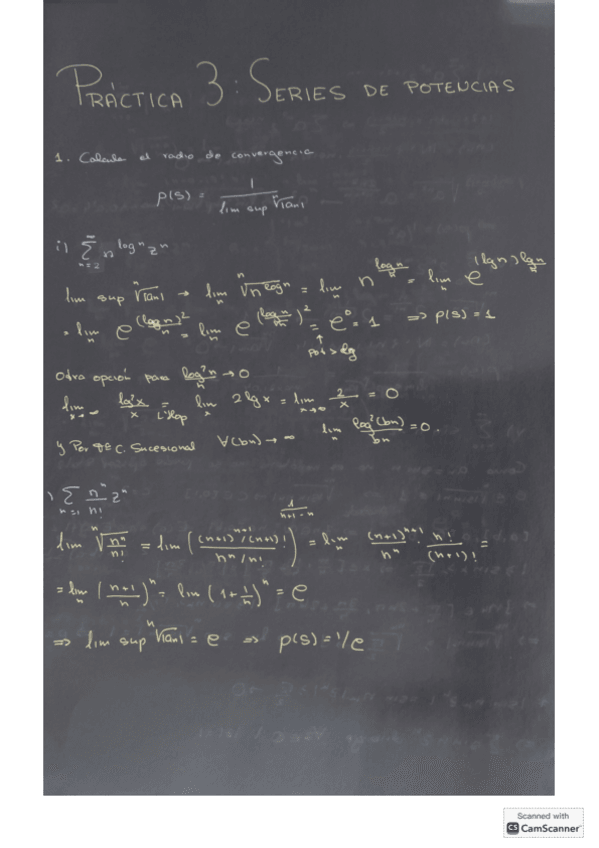 PRÁCTICA 3: SERIES DE POTENCIAS
1. Calcule el radio de convergencia
ρ(S) = 1 / lim sup ⁿ√|an|
i) ∑_{n=2}^∞ n^{log n} zⁿ
lim sup ⁿ√|an| → lim_n ⁿ√(n^{log n}) = lim_n n^{log n/n} = lim_n e^{(lg n) lg n/n}
= lim_n e^{(log n)²/n} = lim_n e^{(log n/√n)²} = e⁰ = 1 ⇒ ρ(S) = 1
pot > lg
Otra opción para log²n/n → 0
lim_{x→∞} lg²x/x = L'Hop lim_x 2 lg x = lim_{x→∞} 2/x = 0
y Por C. Sucesional ∀(bn) → ∞ lim_n log²(bn)/bn = 0.
) ∑_{n=1} nⁿ/n! zⁿ
lim ⁿ√(nⁿ/n!) = lim ( (n+1)^{n+1}/(n+1)! / nⁿ/n! )^{1/(n+1-n)} = lim_n (n+1)^{n+1}/nⁿ · n!/(n+1)! =
= lim_n ((n+1)/n)ⁿ = lim (1 + 1/n)ⁿ = e
⇒ lim sup ⁿ√|an| = e ⇒ ρ(S) = 1/e
Scanned with
CS CamScanner